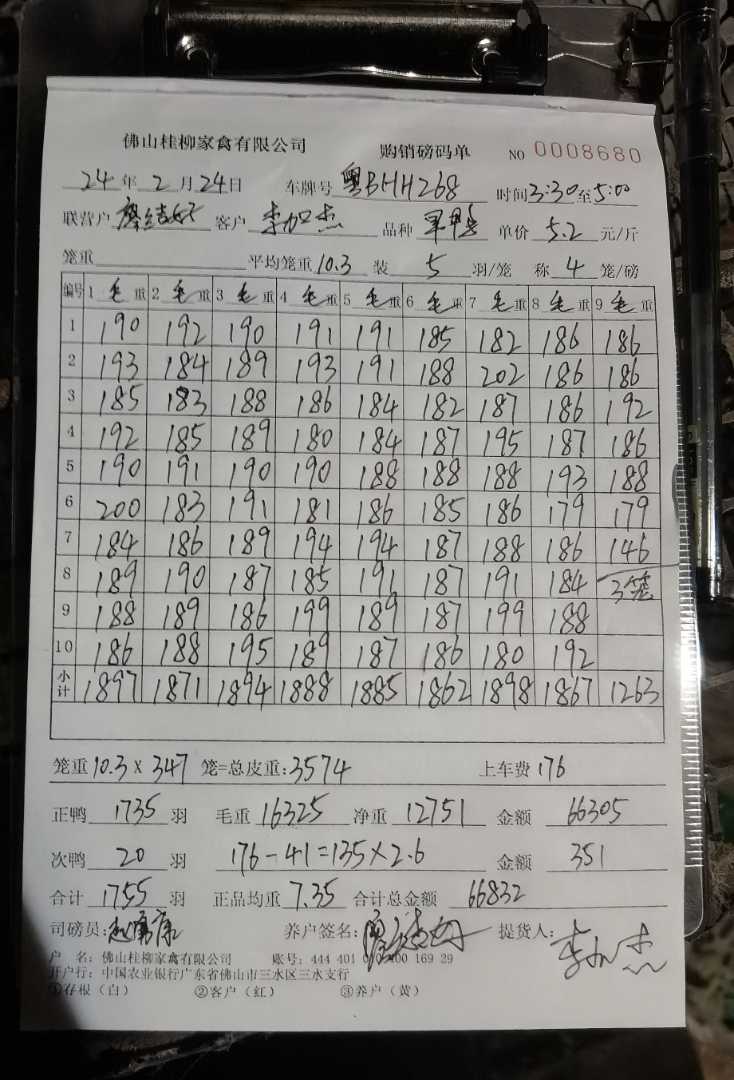 佛山桂柳家禽有限公司 购销磅码单 NO 0008680
24年2月24日 车牌号 粤BHH268 时间3:30至5:00
联营户 廖结好 客户 李加杰 品种 单价 5.2 元/斤
笼重 平均笼重 10.3 装 5 羽/笼 称 4 笼/磅
编号 1 毛重 2 毛重 3 毛重 4 毛重 5 毛重 6 毛重 7 毛重 8 毛重 9 毛重
1 190 192 190 191 191 185 182 186 186
2 193 184 189 193 191 188 202 186 186
3 185 183 188 186 184 182 187 186 192
4 192 185 189 180 184 187 195 187 186
5 190 191 190 190 188 188 188 193 188
6 200 183 191 181 186 185 186 179 179
7 184 186 189 194 194 187 188 186 146
8 189 190 187 185 191 187 191 184 3笼
9 188 189 186 199 189 187 199 188
10 186 188 195 189 187 186 180 192
小计 1897 1871 1894 1888 1885 1862 1898 1867 1263
笼重 10.3 × 347 笼=总皮重:3574 上车费 176
正鸭 1735 羽 毛重 16325 净重 12751 金额 66305
次鸭 20 羽 176-41=135×2.6 金额 351
合计 1755 羽 正品均重 7.35 合计总金额 66832
司磅员: 养户签名: 提货人: 李加杰
户 名: 佛山桂柳家禽有限公司 账号: 444 401 400 169 29
开户行: 中国农业银行广东省佛山市三水区三水支行
①存根(白) ②客户(红) ③养户(黄)